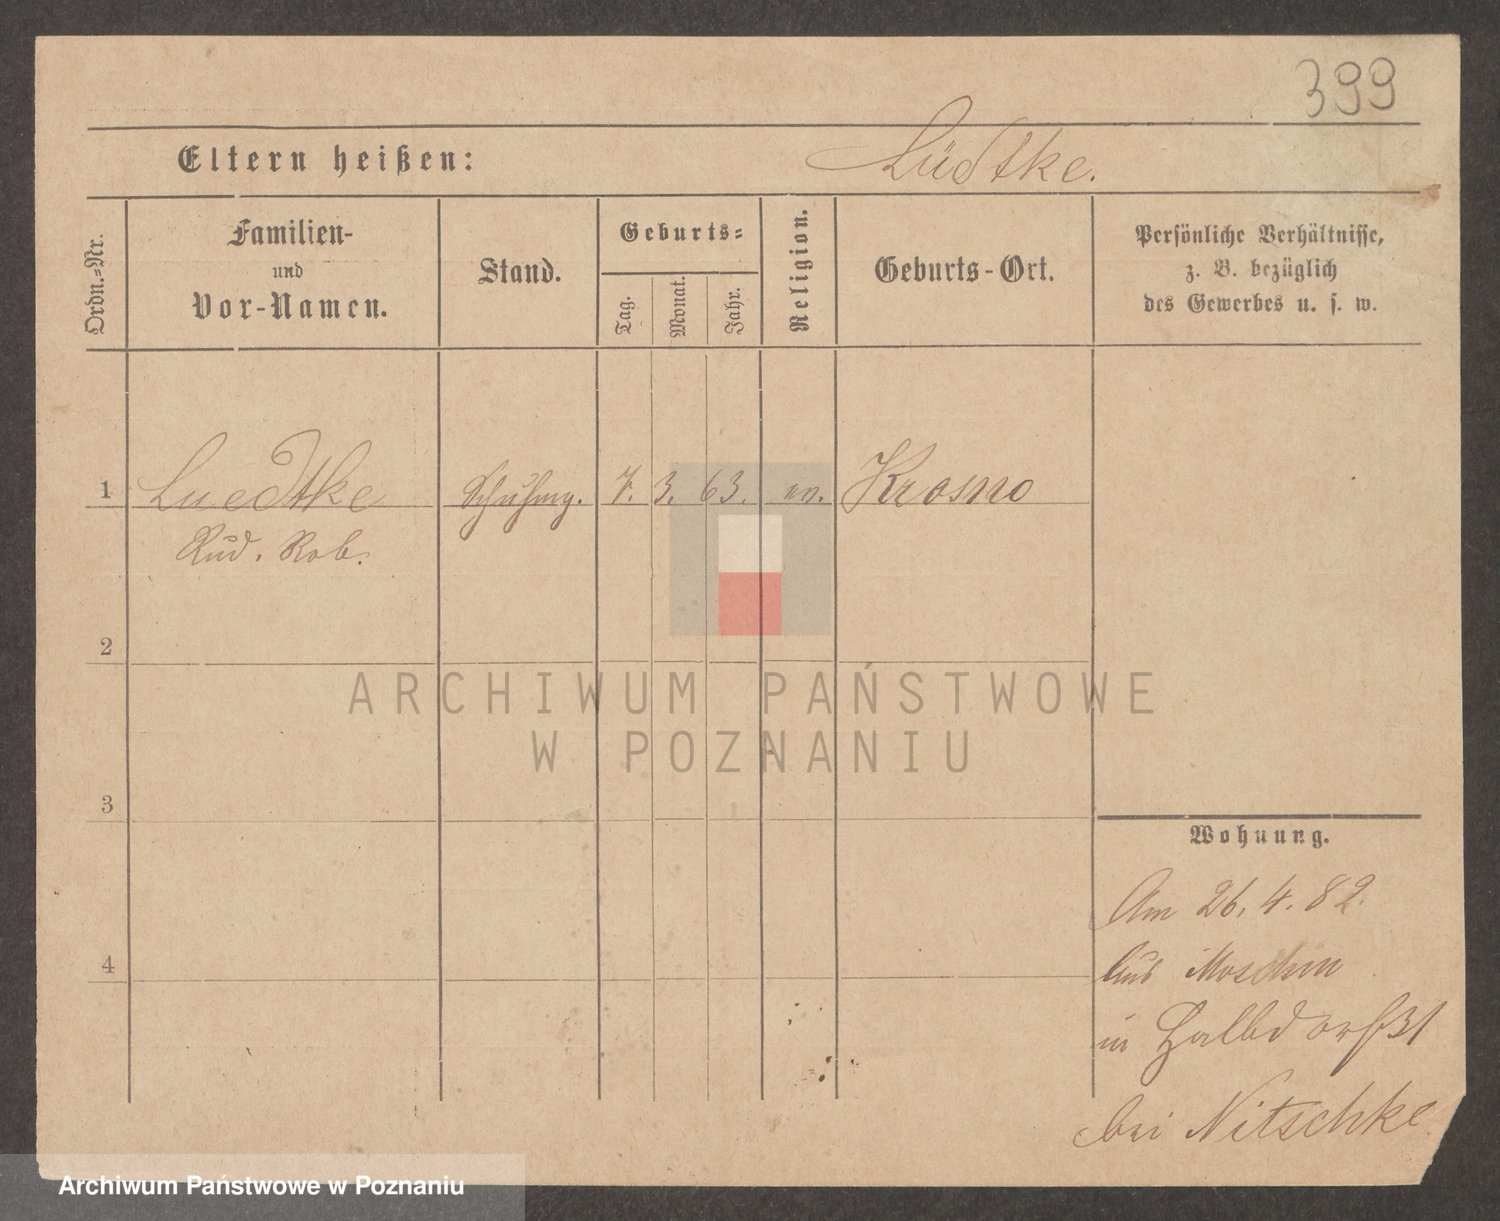 399
Eltern heißen: Lüdtke.
Ordn.-Nr.
Familien-
und
Vor-Namen.
Stand.
Geburts-
Tag.
Monat.
Jahr.
Religion.
Geburts-Ort.
Persönliche Verhältnisse,
z. B. bezüglich
des Gewerbes u. s. w.
1 Luedtke Schuhm. 7. 3. 63. ev. Krosno
Rud. Rob.
2
3
4
Wohnung.
Am 26. 4. 82.
Aus Moschin
in Halbdorfst
bei Nitschke
ARCHIWUM PAŃSTWOWE
W POZNANIU
Archiwum Państwowe w Poznaniu